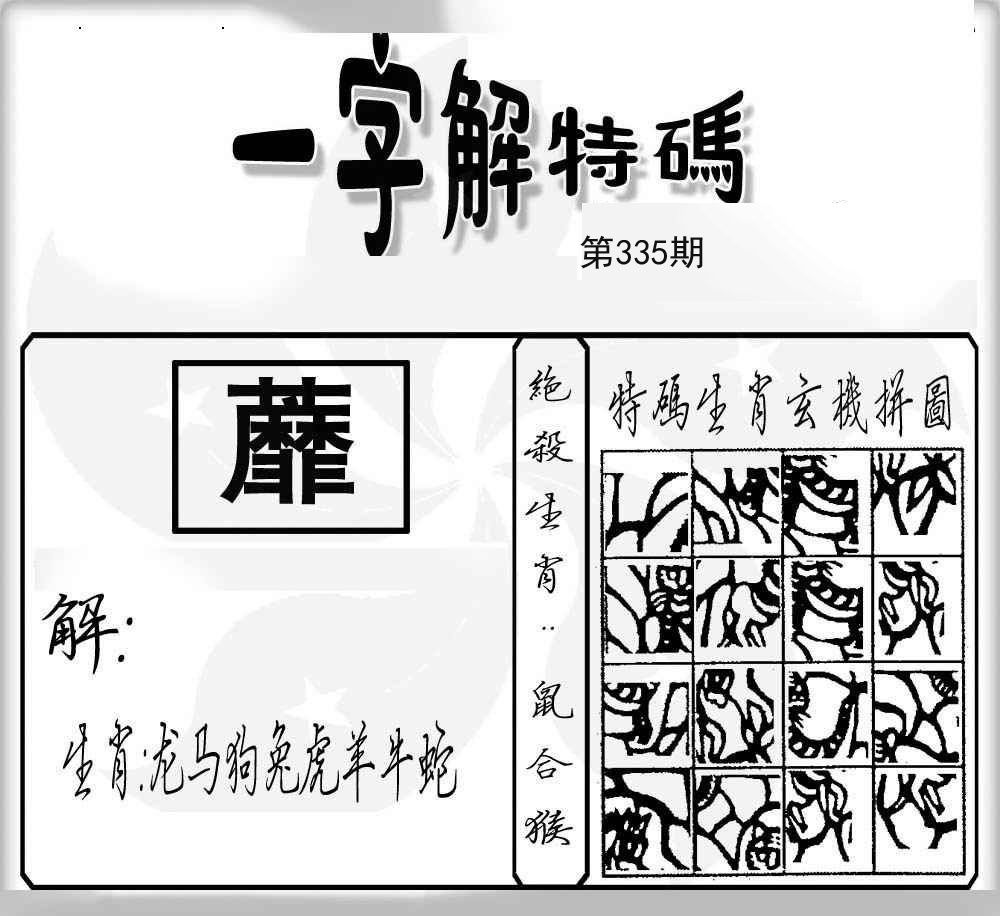 一字解特碼
第335期
蘼
解:
生肖:龙马狗兔虎羊牛蛇
絶殺生肖:鼠合猴
特碼生肖玄機拼圖